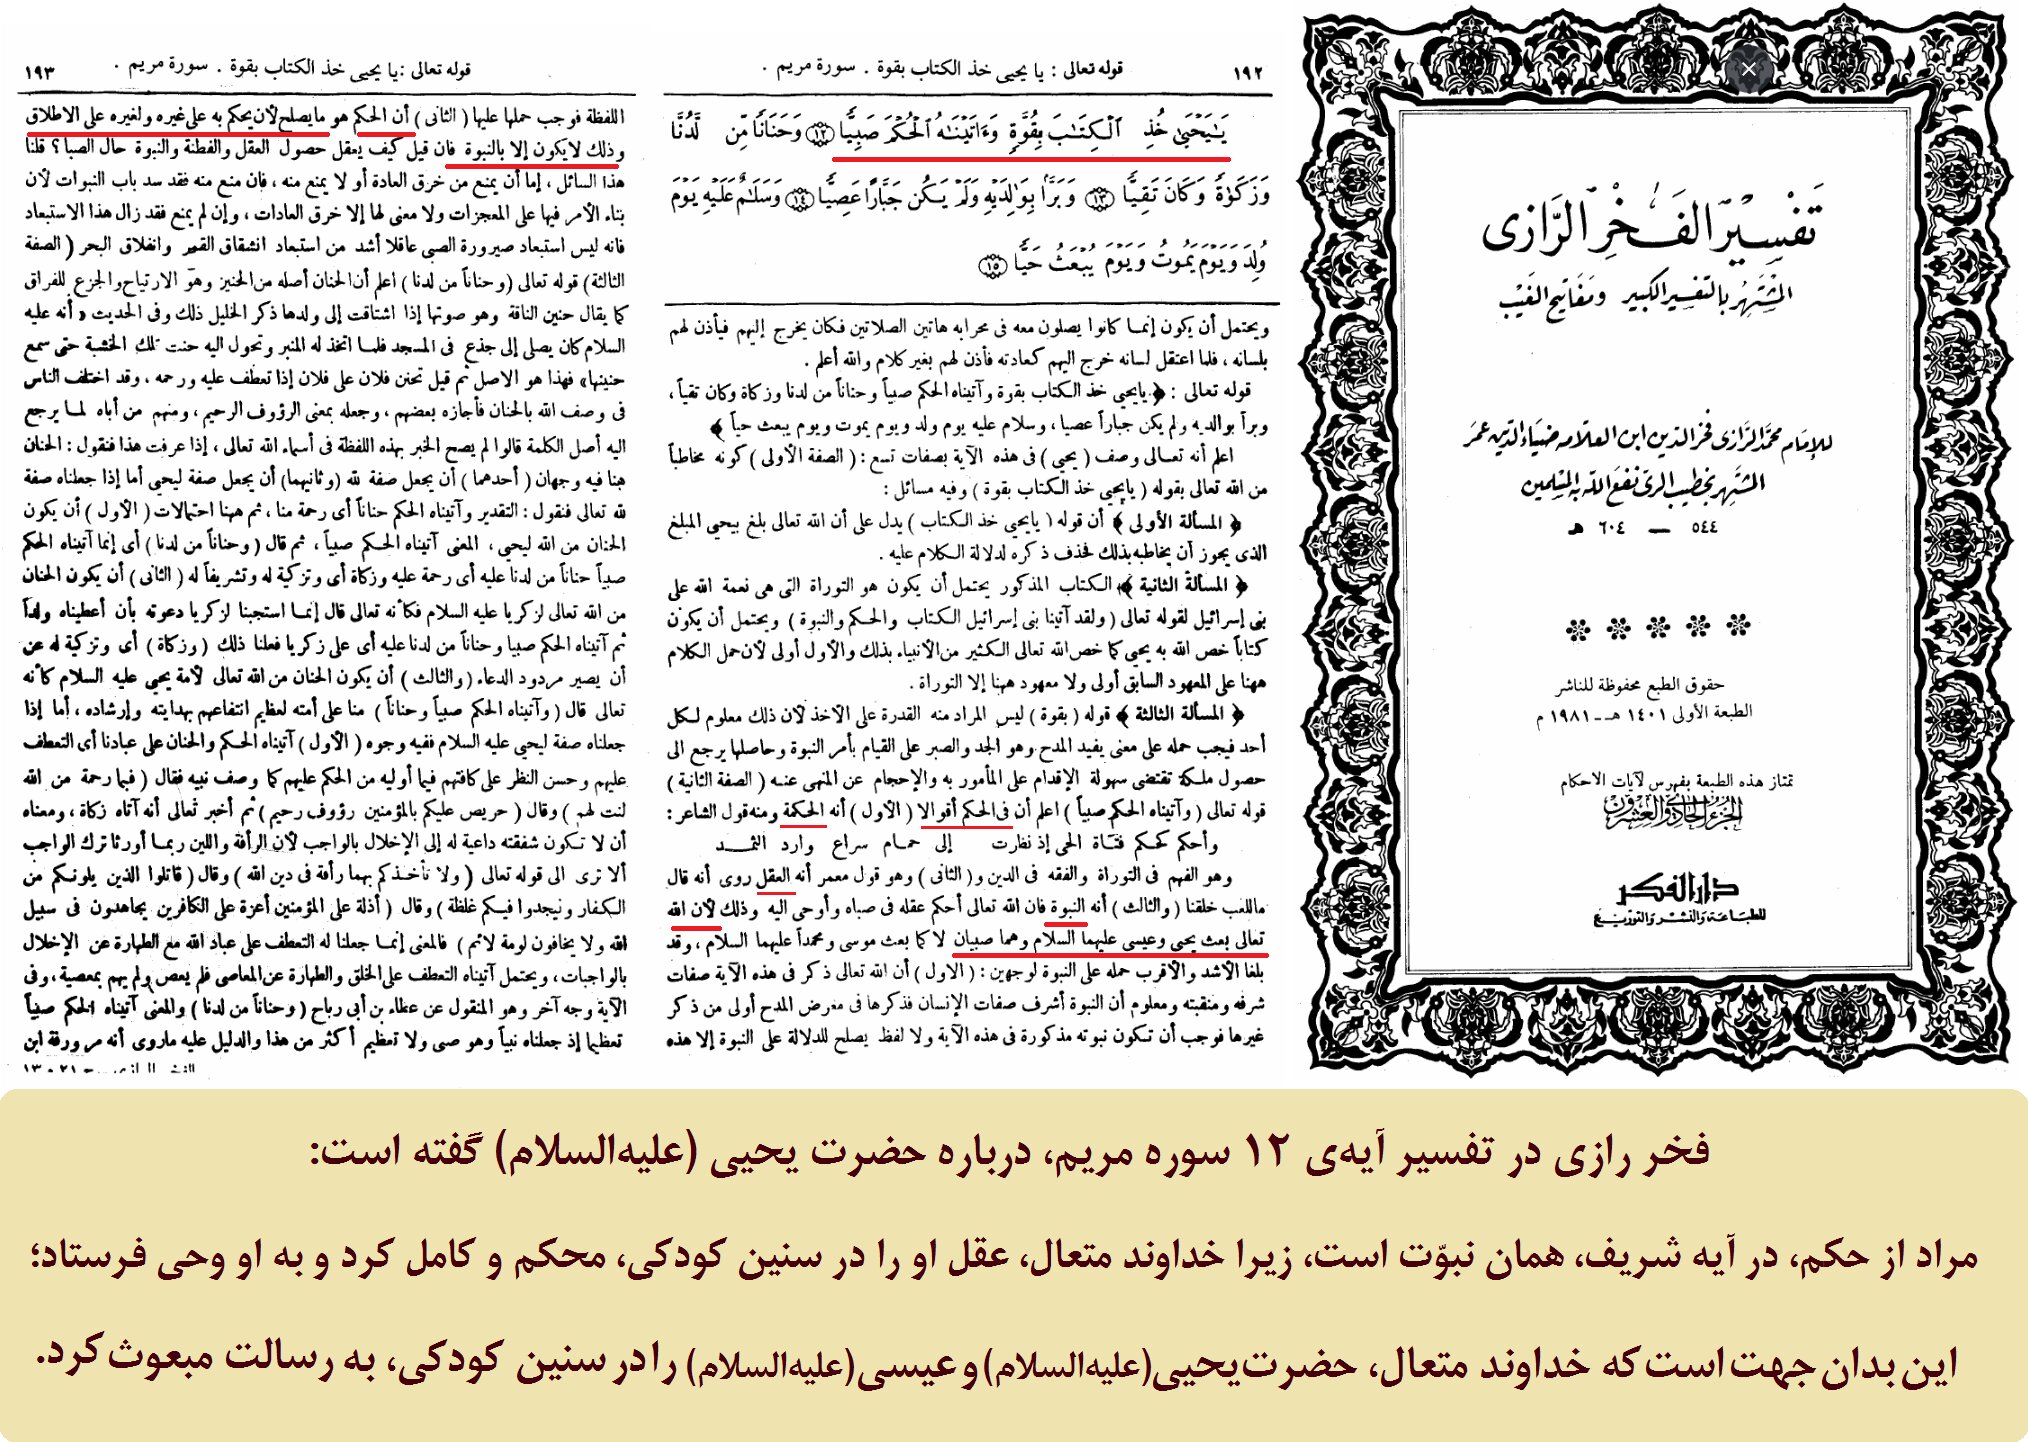 تَفْسِيْرُ الفَخْرِ الرَّازِى
المُشْتَهِرُ بِالتفسِيرِ الكَبِيرِ وَمَفَاتِيحِ الغَيْبِ
للإمَام محمَّد الرَّازى فخر الدّين ابن العلاّمه ضيَاء الدّين عمَر
المشتهر بخطيب الرى نفع الله به المسلمين
٥٤٤ — ٦٠٤ هـ
حقوق الطبع محفوظة للناشر
الطبعة الأولى ١٤٠١ هـ - ١٩٨١ م
تمتاز هذه الطبعة بفهرس لآيات الاحكام
الجزء الحادي والعشرون
دار الفكر
للطباعة والنشر والتوزيع
قوله تعالى : يا يحيى خذ الكتاب بقوة . سورة مريم . ١٩٢
يَٰيَحْيَىٰ خُذِ ٱلْكِتَٰبَ بِقُوَّةٍ وَءَاتَيْنَٰهُ ٱلْحُكْمَ صَبِيًّا ﴿١٢﴾ وَحَنَانًا مِّن لَّدُنَّا
وَزَكَوٰةً وَكَانَ تَقِيًّا ﴿١٣﴾ وَبَرًّا بِوَٰلِدَيْهِ وَلَمْ يَكُن جَبَّارًا عَصِيًّا ﴿١٤﴾ وَسَلَٰمٌ عَلَيْهِ يَوْمَ
وُلِدَ وَيَوْمَ يَمُوتُ وَيَوْمَ يُبْعَثُ حَيًّا ﴿١٥﴾
ويحتمل أن يكون إنما كانوا يصلون معه فى محرابه هاتين الصلاتين فكان يخرج إليهم فيأذن لهم
بلسانه ، فلما اعتقل لسانه خرج اليهم كعادته فأذن لهم بغير كلام والله أعلم .
قوله تعالى : ﴿ يايحيى خذ الكتاب بقوة وآتيناه الحكم صبياً وحناناً من لدنا وزكاة وكان تقياً ،
وبراً بوالديه ولم يكن جباراً عصيا ، وسلام عليه يوم ولد ويوم يموت ويوم يبعث حياً ﴾
اعلم أنه تعالى وصف ( يحيى ) فى هذه الآية بصفات تسع : ( الصفة الأولى ) كونه مخاطباً
من الله تعالى بقوله ( يايحيى خذ الكتاب بقوة ) وفيه مسائل :
﴿ المسألة الأولى ﴾ أن قوله ( يايحيى خذ الكتاب ) يدل على أن الله تعالى بلغ بيحيى المبلغ
الذى يجوز أن يخاطبه بذلك فحذف ذكره لدلالة الكلام عليه .
﴿ المسألة الثانية ﴾ الكتاب المذكور يحتمل أن يكون هو التوراة التى هى نعمة الله على
بنى إسرائيل لقوله تعالى ( ولقد آتينا بنى إسرائيل الكتاب والحكم والنبوة ) ويحتمل أن يكون
كتاباً خص الله به يحيى كما خص الله تعالى الكثير من الأنبياء بذلك والأول أولى لأن حمل الكلام
ههنا على المعهود السابق أولى ولا معهود ههنا إلا التوراة .
﴿ المسألة الثالثة ﴾ قوله ( بقوة ) ليس المراد منه القدرة على الأخذ لأن ذلك معلوم لكل
أحد فيجب حمله على معنى يفيد المدح وهو الجد والصبر على القيام بأمر النبوة وحاصلها يرجع الى
حصول ملكة تقتضى سهولة الإقدام على المأمور به والإحجام عن المنهى عنه ( الصفة الثانية )
قوله تعالى ( وآتيناه الحكم صبياً ) اعلم أن فى الحكم أقوالا ( الأول ) أنه الحكمة ومنه قول الشاعر :
وأحكم كحكم فتاة الحى إذ نظرت إلى حمام سراع وارد الثمد
وهو الفهم فى التوراة والفقه فى الدين و ( الثانى ) وهو قول معمر أنه العقل روى أنه قال
ماللعب خلقنا ( والثالث ) أنه النبوة فان الله تعالى أحكم عقله فى صباه وأوحى اليه وذلك لأن الله
تعالى بعث يحيى وعيسى عليهما السلام وهما صبيان لا كما بعث موسى ومحمداً عليهما السلام ، وقد
بلغا الأشد والأقرب حمله على النبوة لوجهين : ( الاول ) أن الله تعالى ذكر فى هذه الآية صفات
شرفه ومنقبته ومعلوم أن النبوة أشرف صفات الإنسان فذكرها فى معرض المدح أولى من ذكر
غيرها فوجب أن تكون نبوته مذكورة فى هذه الآية ولا لفظ يصلح للدلالة على النبوة إلا هذه
قوله تعالى : يا يحيى خذ الكتاب بقوة . سورة مريم . ١٩٣
اللفظة فوجب حملها عليها ( الثانى ) أن الحكم هو مايصلح لأن يحكم به على غيره ولغيره على الاطلاق
وذلك لايكون إلا بالنبوة فان قيل كيف يعقل حصول العقل والفطنة والنبوة حال الصبا ؟ قلنا
هذا السائل ، إما أن يمنع من خرق العادة أو لا يمنع منه ، فإن منع منه فقد سد باب النبوات لأن
بناء الأمر فيها على المعجزات ولا معنى لها إلا خرق العادات ، وإن لم يمنع فقد زال هذا الاستبعاد
فانه ليس استبعاد صيرورة الصبى عاقلا أشد من استبعاد انشقاق القمر وانفلاق البحر ( الصفة
الثالثة ) قوله تعالى ( وحناناً من لدنا ) اعلم أن الحنان أصله من الحنين وهو الارتياح والجزع للفراق
كما يقال حنين الناقة وهو صوتها إذا اشتاقت إلى ولدها ذكر الخليل ذلك وفى الحديث « أنه عليه
السلام كان يصلى إلى جذع فى المسجد فلما اتخذ له المنبر وتحول اليه حنت تلك الخشبة حتى سمع
حنينها » فهذا هو الاصل ثم قيل تحنن فلان على فلان إذا تعطف عليه ورحمه ، وقد اختلف الناس
فى وصف الله بالحنان فأجازه بعضهم ، وجعله بمعنى الرؤوف الرحيم ، ومنهم من أباه لما يرجع
اليه أصل الكلمة قالوا لم يصح الخبر بهذه اللفظة فى أسماء الله تعالى ، إذا عرفت هذا فنقول : الحنان
هنا فيه وجهان ( أحدهما ) أن يجعل صفة لله ( وثانيهما ) أن يجعل صفة ليحيى أما إذا جعلناه صفة
لله تعالى فنقول : التقدير وآتيناه الحكم حناناً أى رحمة منا ، ثم ههنا احتمالات ( الأول ) أن يكون
الحنان من الله ليحيى ، المعنى آتيناه الحكم صبياً ، ثم قال ( وحناناً من لدنا ) أى إنما آتيناه الحكم
صبياً حناناً من لدنا عليه أى رحمة عليه وزكاة أى وتزكية له وتشريفاً له ( الثانى ) أن يكون الحنان
من الله تعالى لزكريا عليه السلام فكأنه تعالى قال إنما استجبنا لزكريا دعوته بأن أعطيناه ولداً
ثم آتيناه الحكم صبيا وحناناً من لدنا عليه أى على زكريا فعلنا ذلك ( وزكاة ) أى وتزكية له عن
أن يصير مردود الدعاء ( والثالث ) أن يكون الحنان من الله تعالى لأمة يحيى عليه السلام كأنه
تعالى قال ( وآتيناه الحكم صبياً وحناناً ) منا على أمته لعظيم انتفاعهم بهدايته وإرشاده ، أما إذا
جعلناه صفة ليحيى عليه السلام ففيه وجوه ( الأول ) آتيناه الحكم والحنان على عبادنا أى التعطف
عليهم وحسن النظر على كافتهم فيما أوليه من الحكم عليهم كما وصف نبيه فقال ( فبما رحمة من الله
لنت لهم ) وقال ( حريص عليكم بالمؤمنين رؤوف رحيم ) ثم أخبر تعالى أنه آتاه زكاة ، ومعناه
أن لا تكون شفقته داعية له إلى الإخلال بالواجب لأن الرأفة واللين ربما أورثا ترك الواجب
ألا ترى الى قوله تعالى ( ولا تأخذكم بهما رأفة فى دين الله ) وقال ( قاتلوا الذين يلونكم من
الكفار وليجدوا فيكم غلظة ) وقال ( أذلة على المؤمنين أعزة على الكافرين يجاهدون فى سبيل
الله ولا يخافون لومة لائم ) فالمعنى إنما جعلنا له التعطف على عباد الله مع الطهارة عن الإخلال
بالواجبات ، ويحتمل آتيناه التعطف على الخلق والطهارة عن المعاصى فلم يعص ولم يهم بمعصية ، وفى
الآية وجه آخر وهو المنقول عن عطاء بن أبى رباح ( وحناناً من لدنا ) والمعنى آتيناه الحكم صبياً
تعظيما إذ جعلناه نبياً وهو صبى ولا تعظيم أكثر من هذا والدليل عليه ماروى أنه مر ورقة ابن
الفخر الرازى – ج ٢١ م ١٣
فخر رازی در تفسیر آیه‌ی ۱۲ سوره مریم، درباره حضرت یحیی (علیه‌السلام) گفته است:
مراد از حکم، در آیه شریف، همان نبوّت است، زیرا خداوند متعال، عقل او را در سنین کودکی، محکم و کامل کرد و به او وحی فرستاد؛
این بدان جهت است که خداوند متعال، حضرت یحیی(علیه‌السلام) و عیسی(علیه‌السلام) را در سنین کودکی، به رسالت مبعوث کرد.